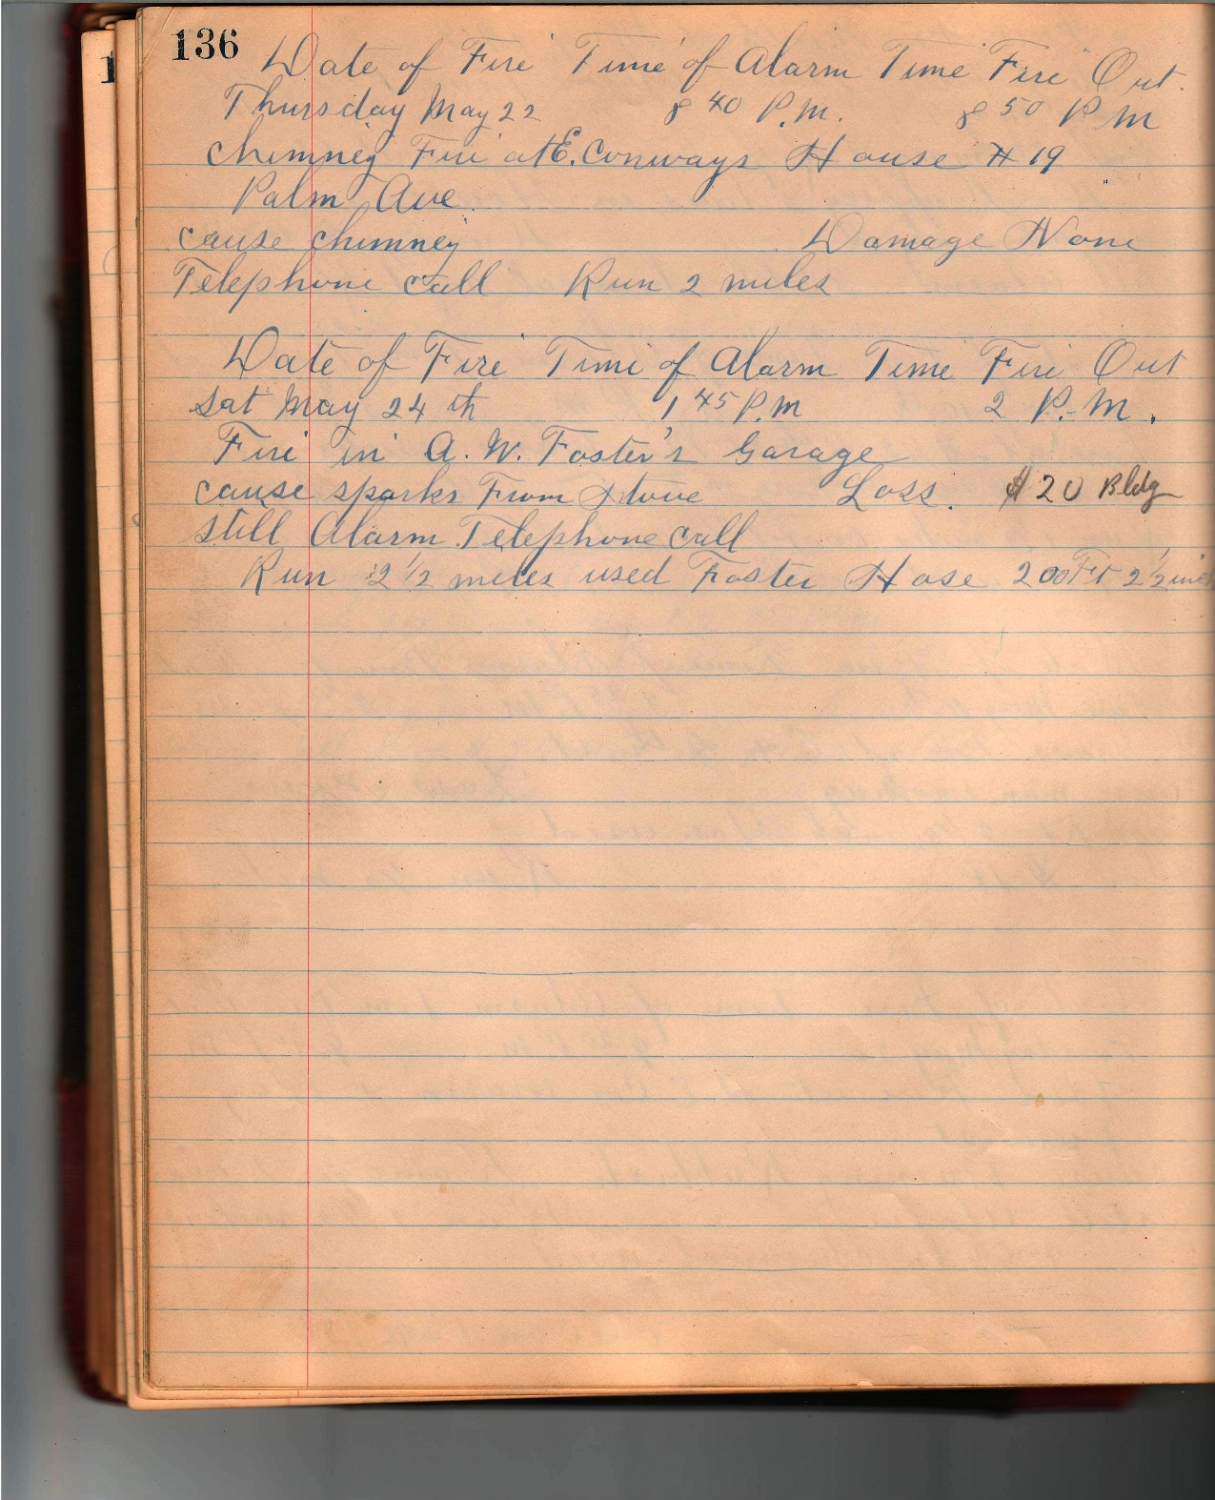 136
Date of Fire Time of Alarm Time Fire Out.
Thursday May 22 8 40 P.M. 8 50 P M
chimney Fire at E. Conways House # 19
Palm Ave.
cause chimney Damage None
Telephone call Run 2 miles
Date of Fire Time of Alarm Time Fire Out
Sat May 24 th 1 45 P.M 2 P.M.
Fire in A. W. Foster's Garage
cause sparks From Stove Loss. $20 Bldg
still Alarm Telephone call
Run 2 1/2 miles used Foster Hose 200 Ft 2 1/2 inch